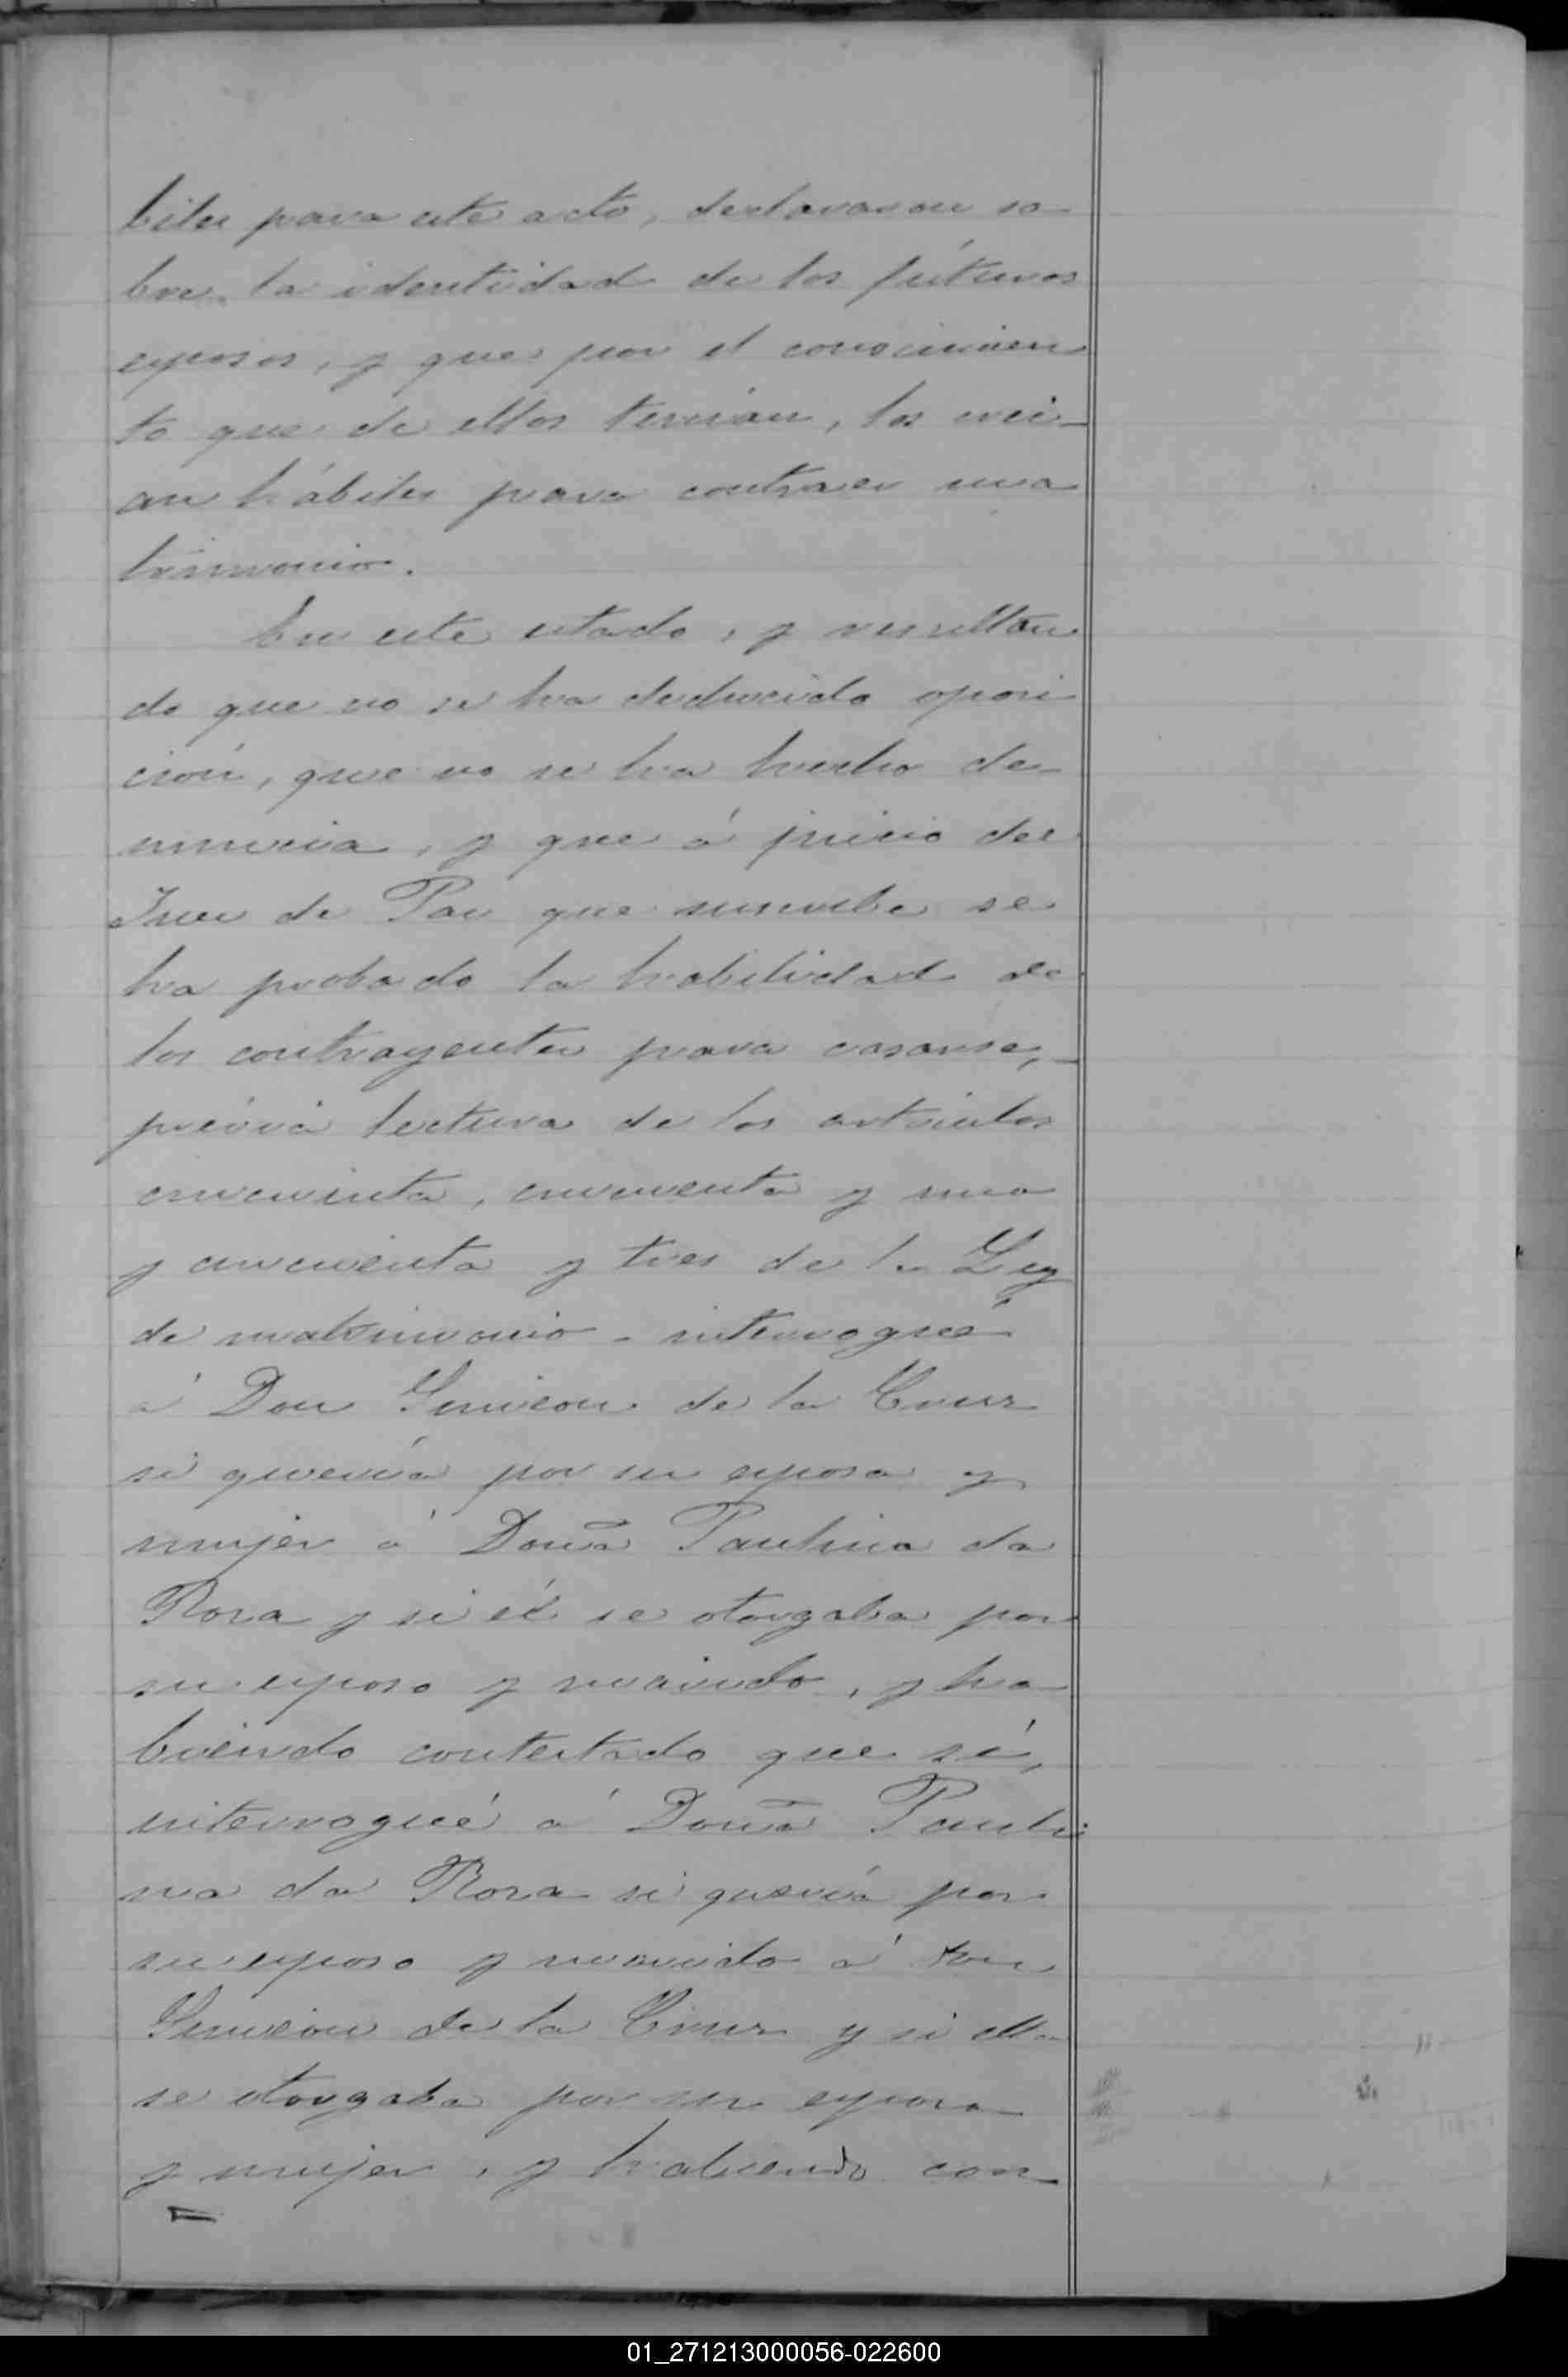 biles para este acto, declararon so-
bre la identidad de los fúturos
esposos, y que por el conocimien
to que de ellos tenian, los crei-
an hábiles para contraer ma
trimonio.
En este estado, y resultan
do que no se ha deducido oposi
ción, que no se ha hecho de-
nuncia, y que á juicio del
Juez de Paz que suscribe se
ha probado la habilidad de
los contrayentes para casarse,-
prévia lectura de los artículos
cincuenta, cincuenta y uno
y cincuenta y tres de la Ley
de matrimonio - interrogué
á Don Simeon de la Cruz
si quería por su esposa y
mujer á Doña Paulina da
Rosa y si él se otorgaba por
su esposo y marido, y ha-
biendo contestado que sí,
interrogué á Doña Pauli
na da Rosa si quería por
su esposo y marido á Don
Simeon de la Cruz y si ella
se otorgaba por su esposa
y mujer, y habiendo con-
01_271213000056-022600